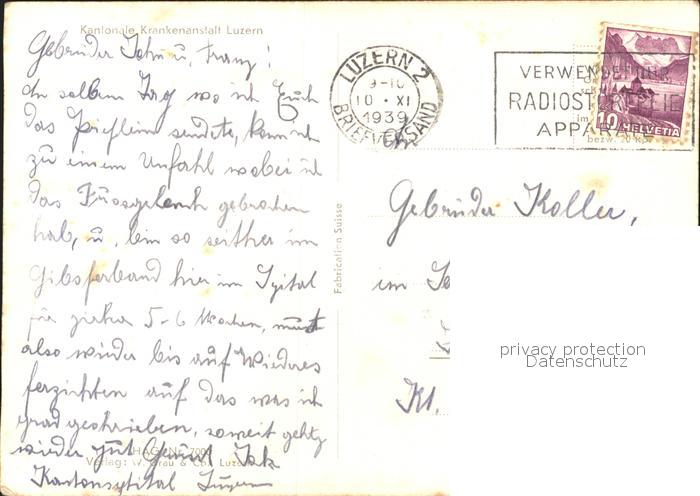 Kantonale Krankenanstalt Luzern
Gebrüder John u, Franz!
An selbem Tag wo ich Euch
das Brieflein sendete, kam ich
zu einem Unfahl wobei ich
das Füssgelenk gebrochen
hab, u, bin so seither im
Gibsferband hier im Spital
für zirka 5-6 Wochen, must
also wieder bis auf Wiederes
ferzichten auf das was ich
grad geschrieben, soweit gehts
wieder gut Gerard
Kantonspital Luzern
Verlag: W. & Co. Luzern
Fabrication Suisse
LUZERN 2
9-10
10 · XI
1939
BRIEFVERSAND
VERWENDET NUR
RADIOSTÖRFREIE
APPARATE
bezw. 20 Rp.
10 HELVETIA
Gebrüder Koller,
im
Kt.
privacy protection
Datenschutz